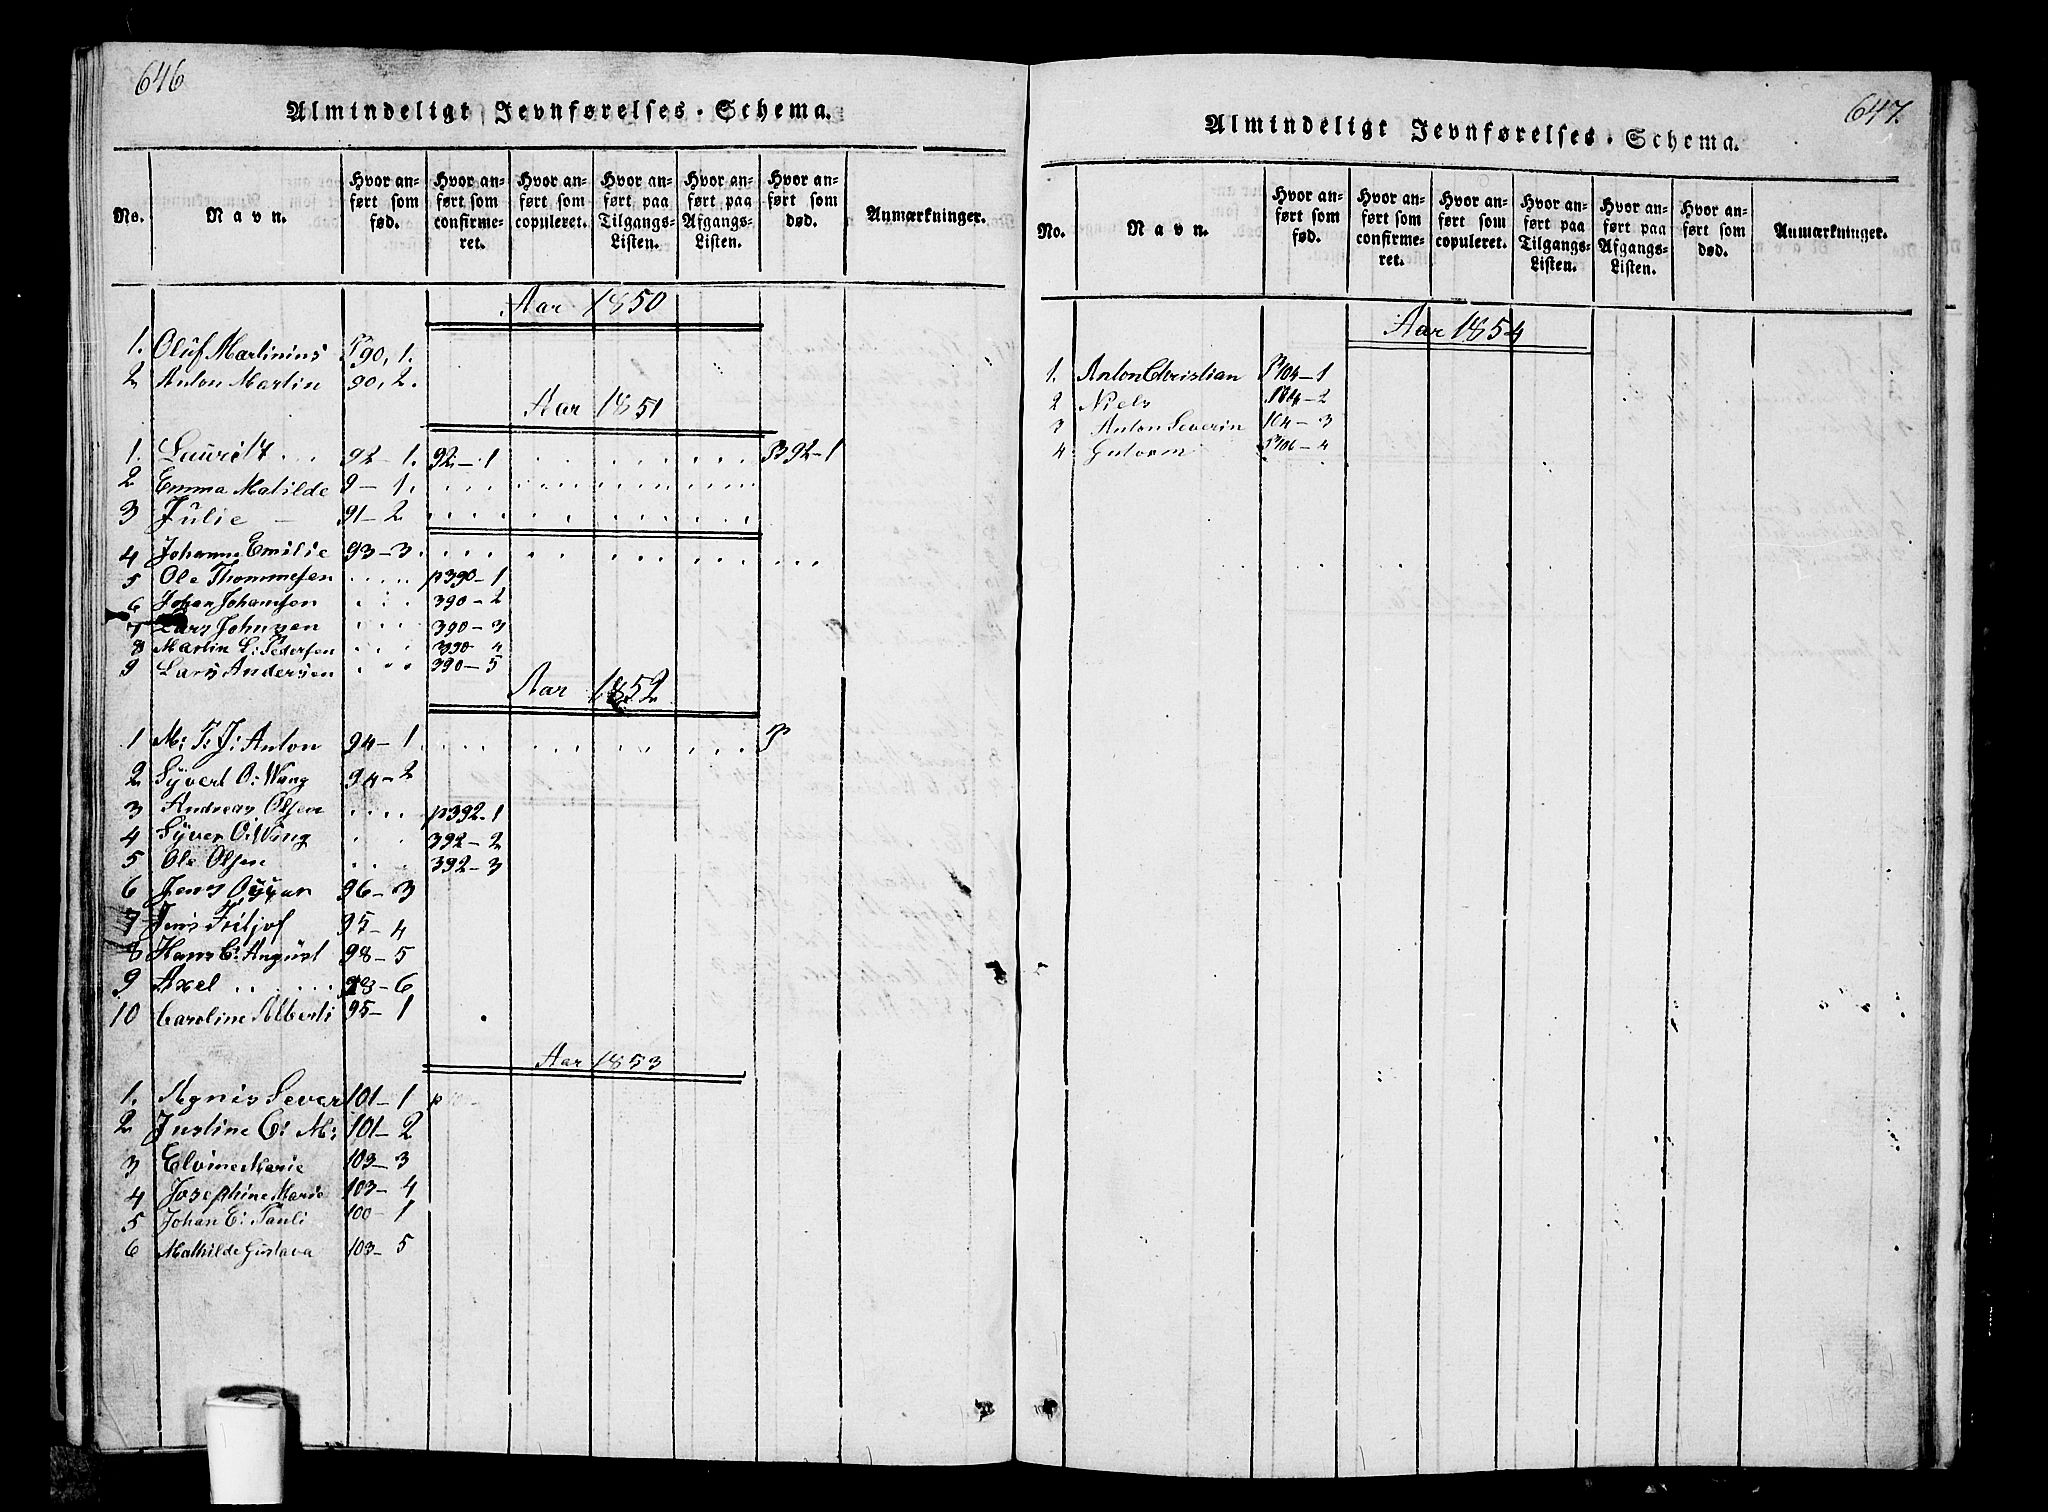 646
Almindeligt Jevnførelses-Schema.
No. Navn. Hvor anført som fød. Hvor anført som confirmeret. Hvor anført som copuleret. Hvor anført paa Tilgangs-Listen. Hvor anført paa Afgangs-Listen. Hvor anført som død. Anmærkninger.
Aar 1850
1. Oluf Martinius P90, 1.
2 Anton Martin 90, 2.
Aar 1851
1. Lauritz 92-1. 92-1 P392-1
2 Emma Matilde 9-1.
3 Julie 91-2
4 Johanne Emilie 93-3.
5 Ole Thommesen p390-1
6 Johan Johansen 390-2
7 Lars Johnsen 390-3
8 Martin L: Pedersen 390-4
9 Lars Andersen 390-5
Aar 1852
1 M: P: J: Anton 94-1. P
2 Syvert O: Wang 94-2
3 Andreas Olsen p392-1
4 Syver O: Wang 392-2
5 Ole Olsen 392-3
6 Jens 96-3
7 Jens Fritjof 95-4
8 Hans C: August 98-5
9 Axel 98-6
10 Caroline Alberti 95-1
Aar 1853
1. Agnis Sever 101-1 p
2 Justine C: M: 101-2
3 Elvine Marie 103-3
4 Josephine Marie 103-4
5 Johan E: Pauli 100-1
6 Mathilde Gustava 103-5
647.
Almindeligt Jevnførelses-Schema.
No. Navn. Hvor anført som fød. Hvor anført som confirmeret. Hvor anført som copuleret. Hvor anført paa Tilgangs-Listen. Hvor anført paa Afgangs-Listen. Hvor anført som død. Anmærkninger.
Aar 1854
1. Anton Christian P104-1
2 Niels 104-2
3 Anton Severin 104-3
4 Gutorm P106-4